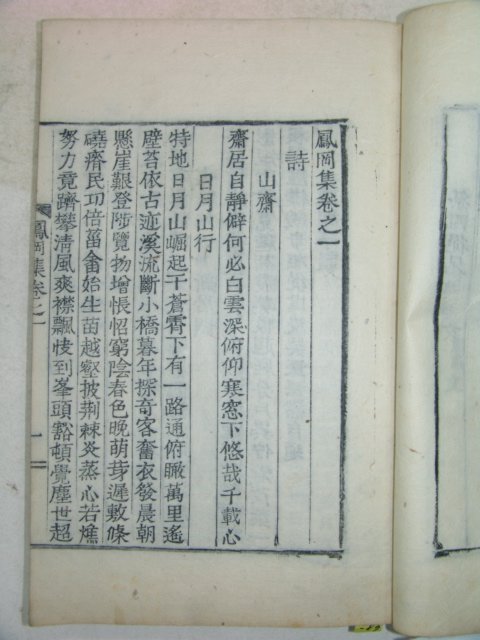 鳳岡集卷之一
詩
山齋
齋居自靜僻何必白雲深俯仰寒窓下悠哉千載心
日月山行
特地日月山崛起干蒼霄下有一路通俯瞰萬里遙
壁苔依古迹溪流斷小橋暮年探奇客奮衣發晨朝
懸崖艱登陟覽物增悵怊窮陰春色晚萌芽遲敷條
磽瘠民功倍菑畬始生苗越壑披荊棘炎蒸心若燋
努力竟躋攀清風爽襟飄忮到峯頭豁頓覺塵世超
鳳岡集卷之一
一